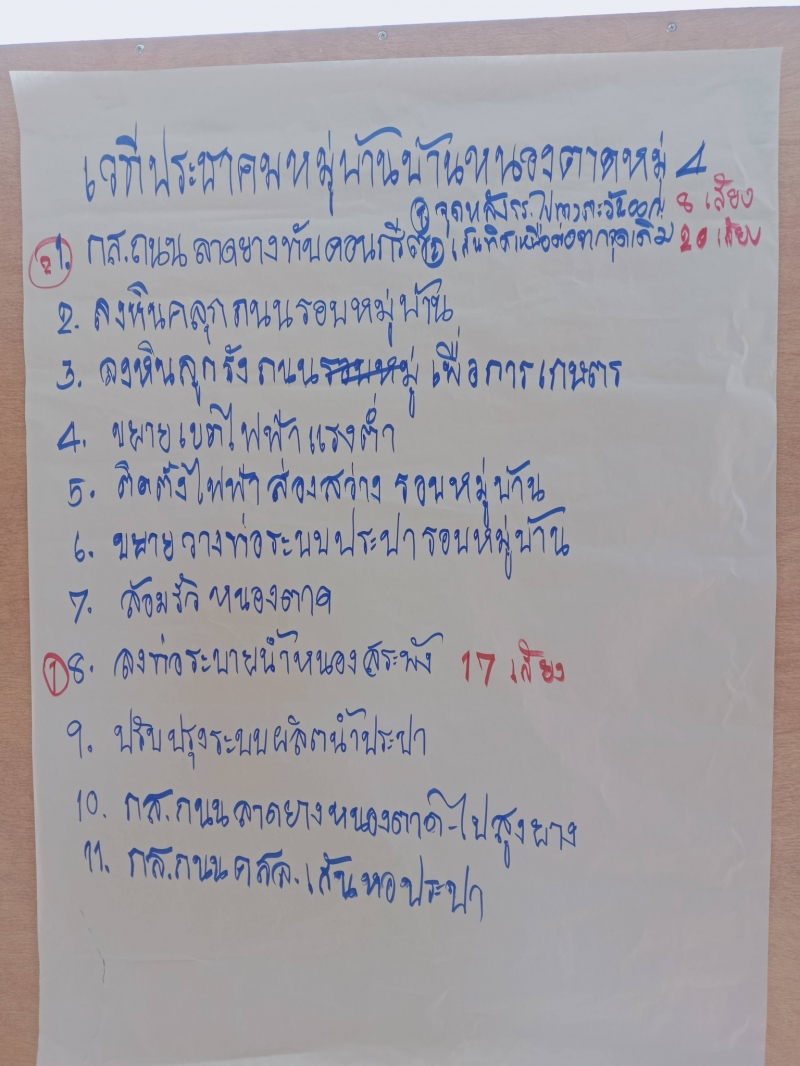 เวทีประชาคมหมู่บ้านบ้านหนองตาดหมู่ 4
① จุดหลัง รร. ไปทางตะวันออก 8 เสียง
② 1. กส.ถนน ลาดยางทับคอนกรีต ② เส้นทิศเหนือต่อจากจุดเดิม 20 เสียง
2. ลงหินคลุกถนนรอบหมู่บ้าน
3. ลงหินลูกรังถนนรอบหมู่ เพื่อการเกษตร
4. ขยายเขตไฟฟ้าแรงต่ำ
5. ติดตั้งไฟฟ้าส่องสว่าง รอบหมู่บ้าน
6. ขยายวางท่อระบบประปารอบหมู่บ้าน
7. ล้อมรั้ว หนองตาด
① 8. ลงท่อระบายน้ำหนองสระพัง 17 เสียง
9. ปรับปรุงระบบผลิตน้ำประปา
10. กส.ถนนลาดยางหนองตาด-ไปสูงยาง
11. กส.ถนน คสล. เส้นหอประปา